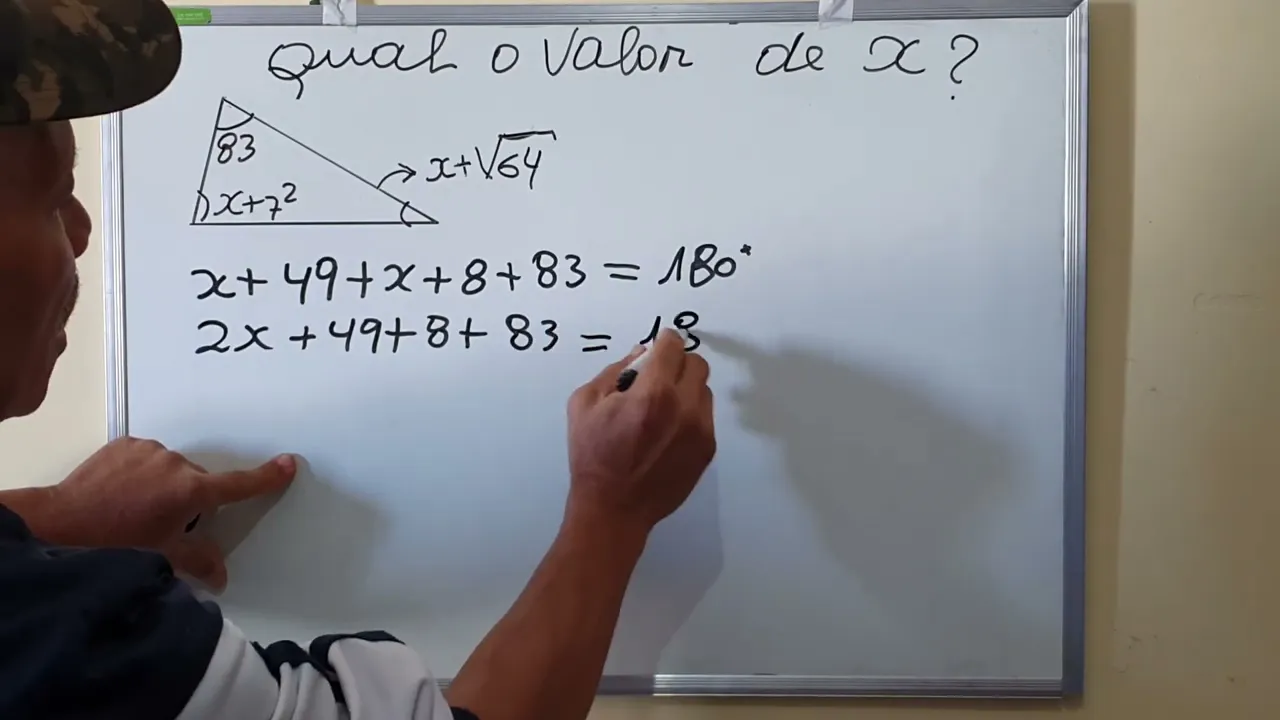 Qual o valor de x?
83
x+√64
x+7²
x+49+x+8+83=180°
2x+49+8+83=18